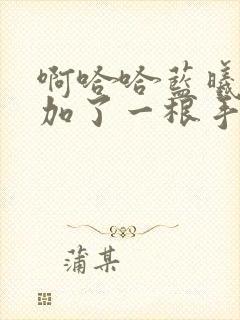 啊哈哈藍曦
加了一根手
蒲某